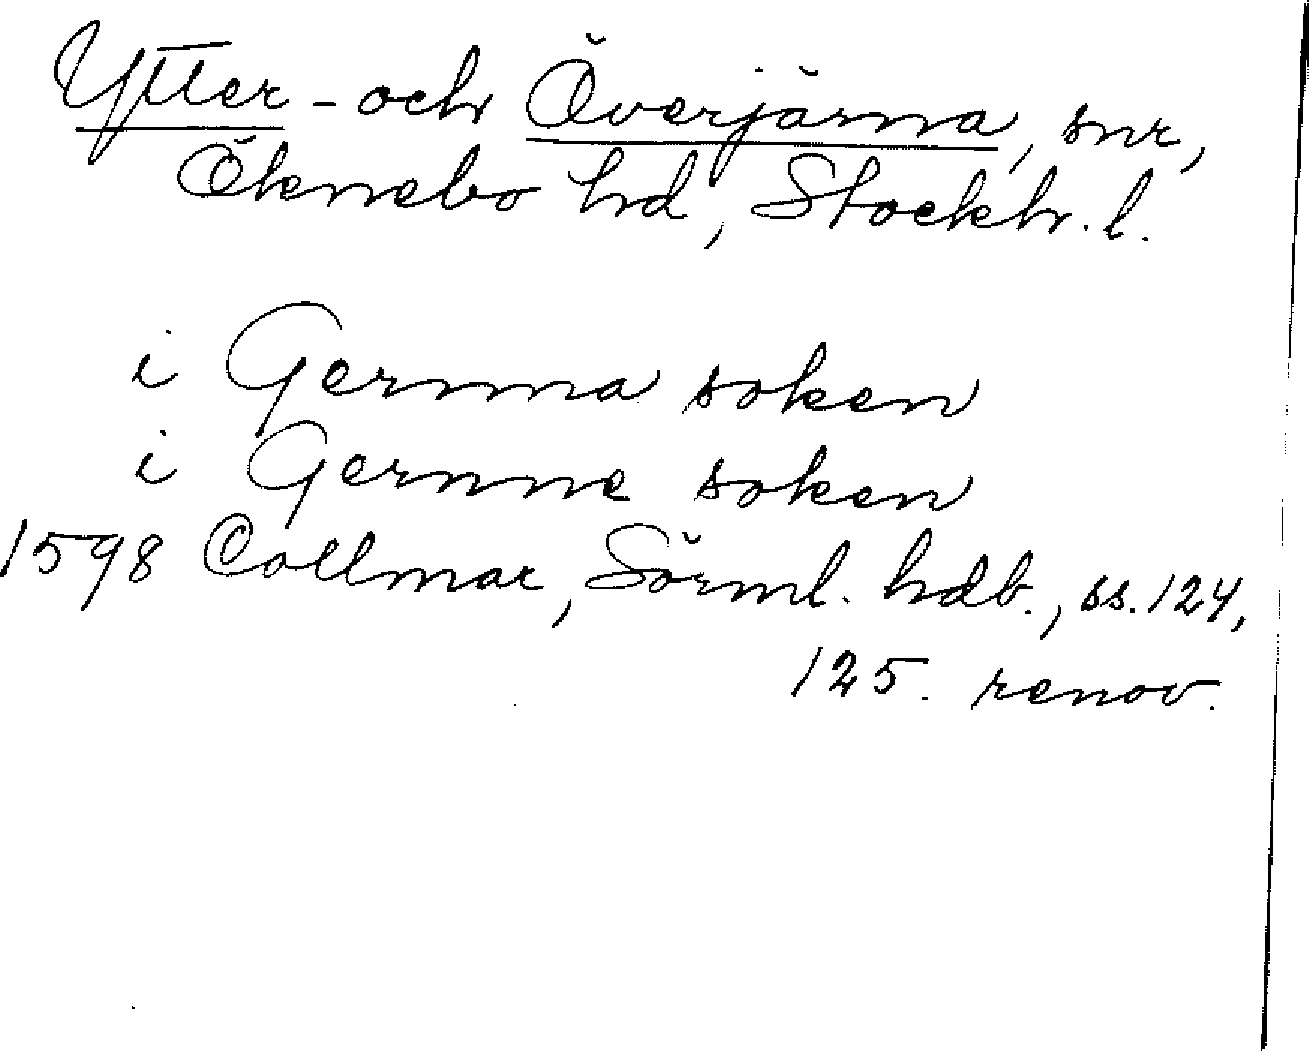 Ytter- och Överjärna, snr,
Öknebo hd, Stockh. l.
i Gernna soken
i Gernne soken
1598 Collmar, Sörml. hdb., ss. 124,
125. renov.